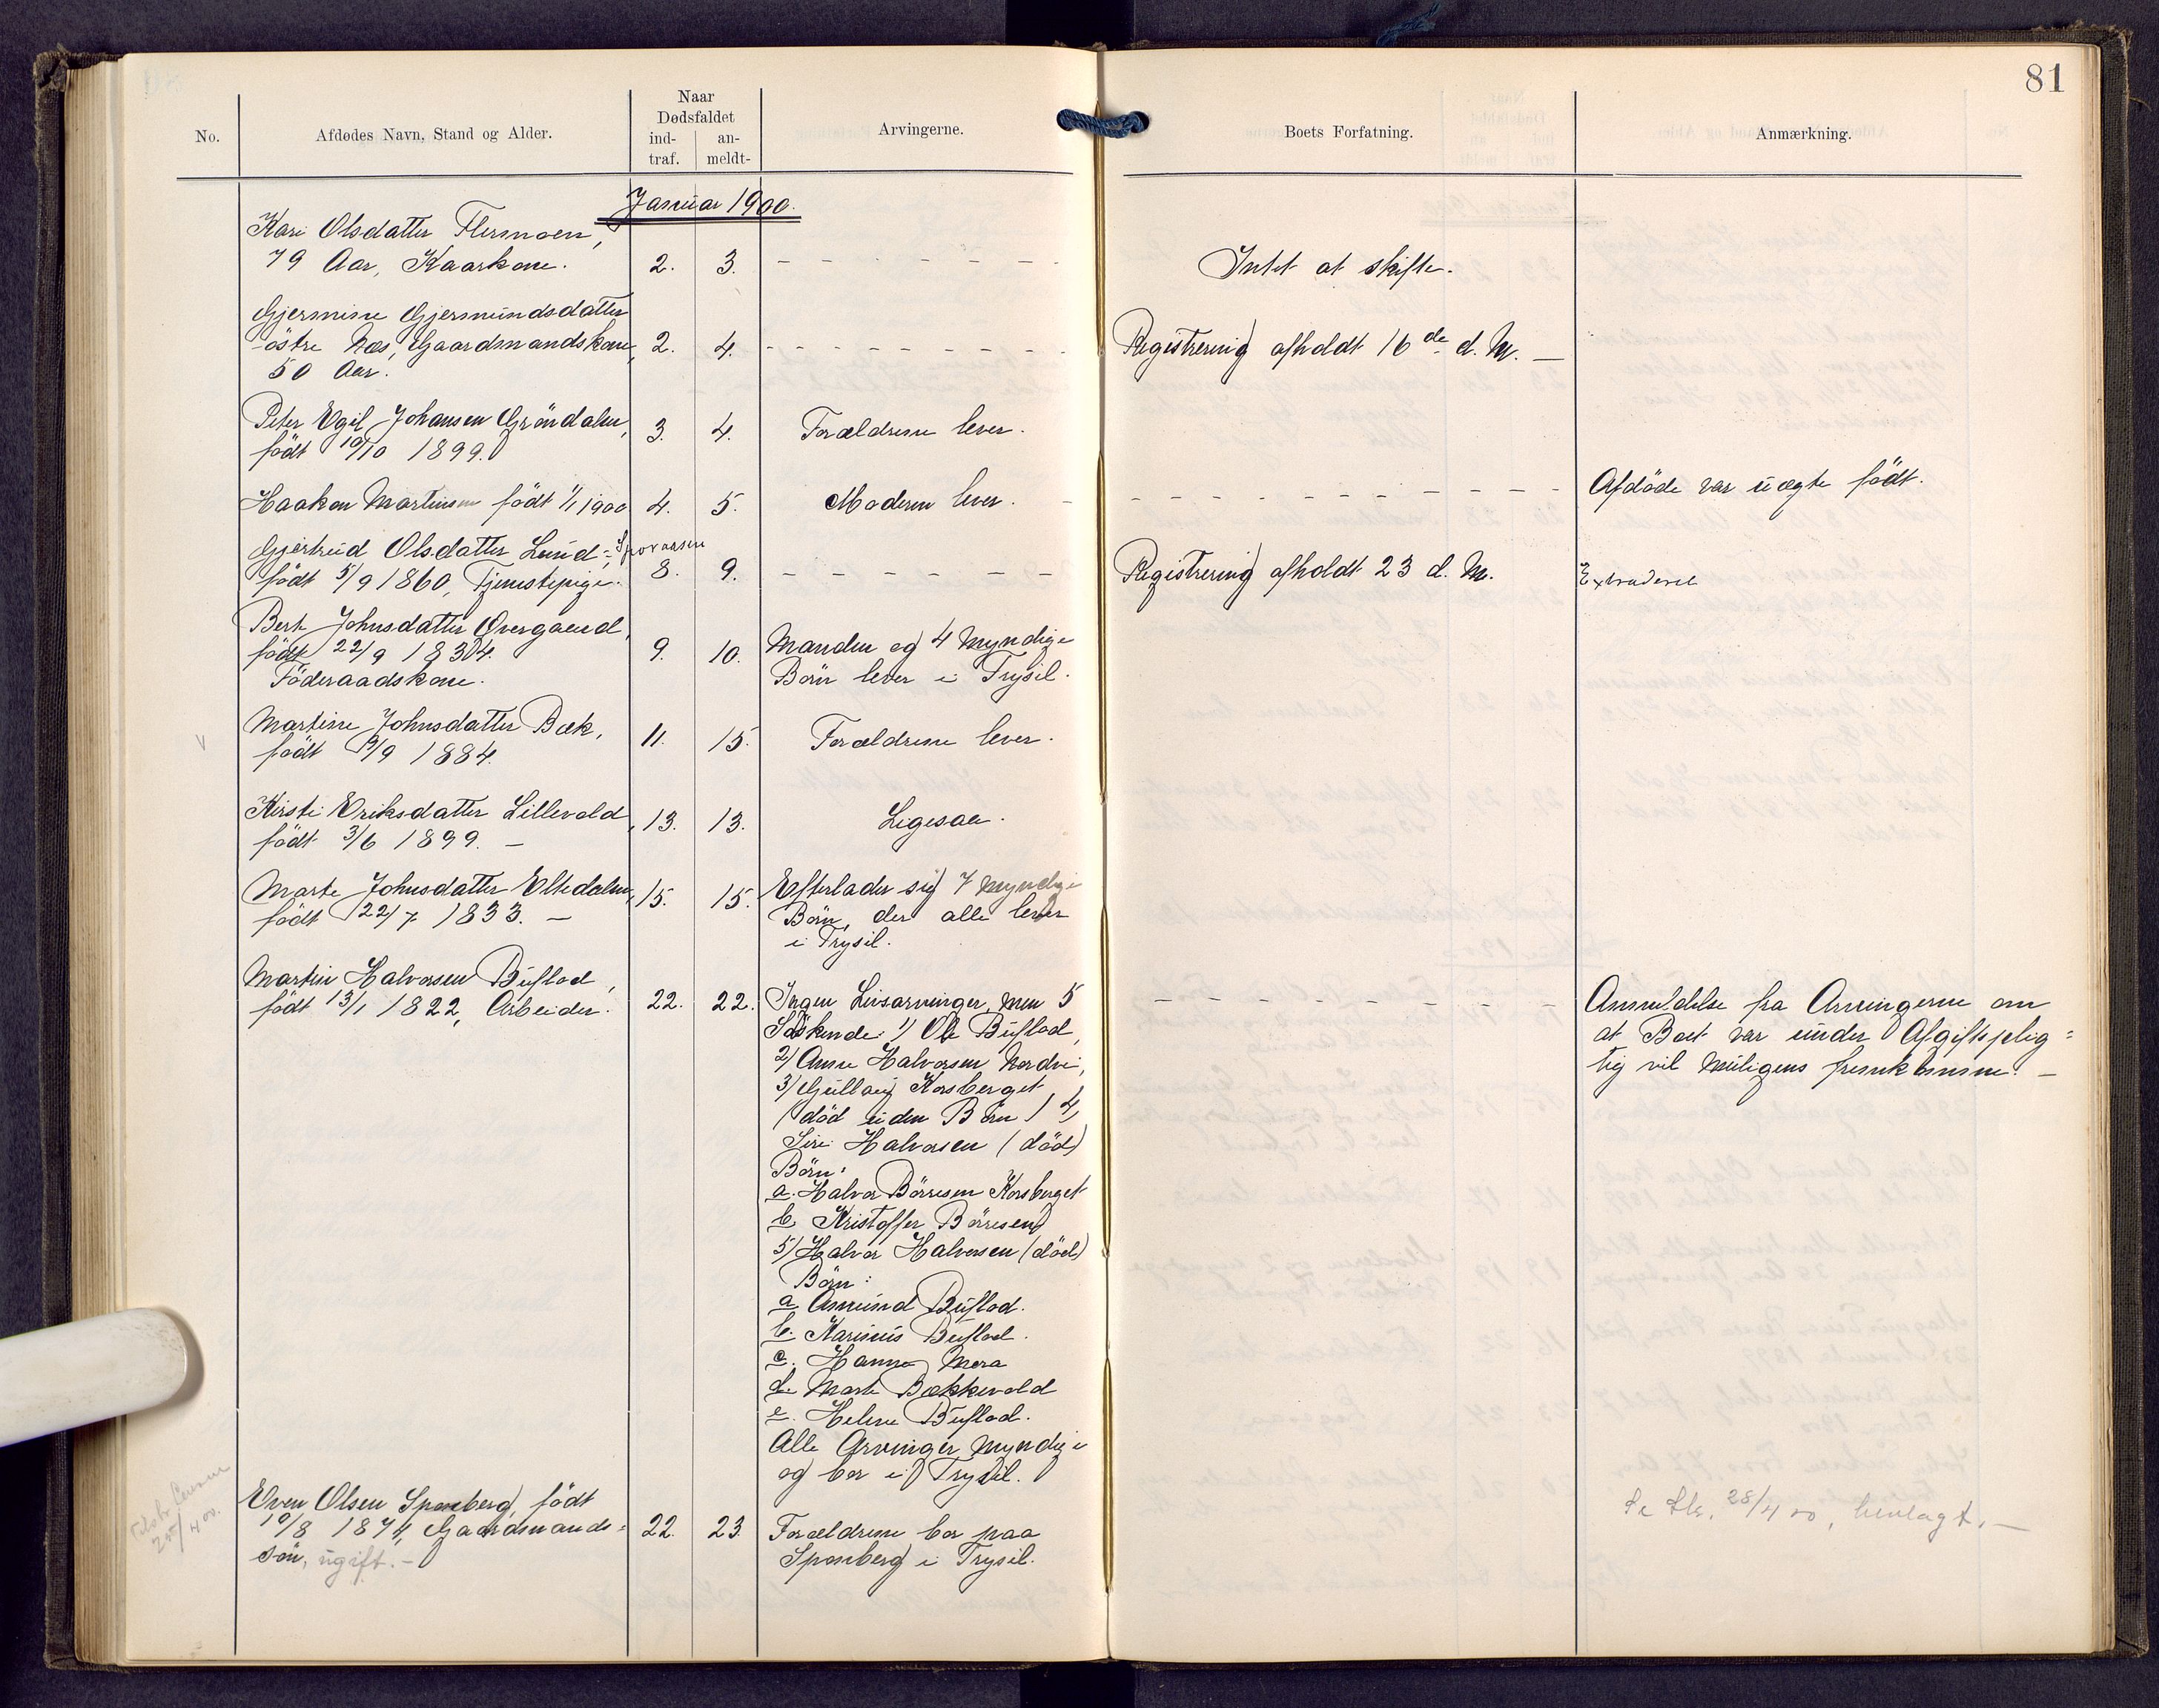 81
No.
Afdødes Navn, Stand og Alder.
Naar
Dødsfaldet
ind-
traf.
an-
meldt-
Arvingerne.
Boets Forfatning.
Anmærkning.
Januar 1900.
Kari Olsdatter Flermoen,
79 Aar, Kaarkone. 2. 3. Intet at skifte.
Gjermine Gjermundsdatter
östre Næs, Gaardmandskone, 2. 4. Registrering afholdt 16de d. M. —
50 Aar.
Peter Egil Johansen Gröndalen,
födt 10/10 1899. 3. 4. Forældrene lever.
Haakon Martinsen födt 1/1 1900 4. 5. Moderen lever. Afdöde var uægte födt.
Gjertrud Olsdatter Lund-
födt 5/9 1860, Tjenestepige. 8. 9. Registrering afholdt 23 d. M. Extraderet
Berit Johnsdatter Övergaard,
födt 22/9 1834.
Föderaadskone. 9. 10. Manden og 4 Myndige
Börn lever i Trysil.
Martine Johnsdatter Bæk,
födt 19/9 1884. 11. 15. Forældrene lever.
Kirsti Eriksdatter Lillevold,
födt 3/6 1899. — 13. 13. Ligesaa.
Marte Johnsdatter Eltdalen,
födt 22/7 1833. — 15. 15. Efterlader sig 7 Myndige
Börn, der alle lever
i Trysil.
Martin Halvorsen Buflod,
födt 13/1 1822, Arbeider. 22. 22. Ingen Livsarvinger, men 5
Söskende: 1) Ole Buflod,
2) Anne Halvorsen Nordvi,
3) Gullaug Korsberget
(död uden Börn) 4)
Siri Halvorsen (död)
Börn:
a. Halvor Börresen Korsberget
b. Kristoffer Börresen
5) Halvor Halvorsen (död)
Börn:
a. Amund Buflod.
b. Karinius Buflod.
c. Hanna Mora
d. Marte Bækkevold
e. Helene Buflod.
Alle Arvinger Myndige
og bor i Trysil.
Anmeldelse fra Arvingerne om
at Boet var under Afgiftspligtig
vil muligens fremkomme. —
Even Olsen Sponberg, födt
10/8 1874, Gaardmands-
sön, ugift. — 22. 23. Forældrene bor paa
Sponberg i Trysil.
Se Skr. 28/4 00, henlagt. —
25/4 00.